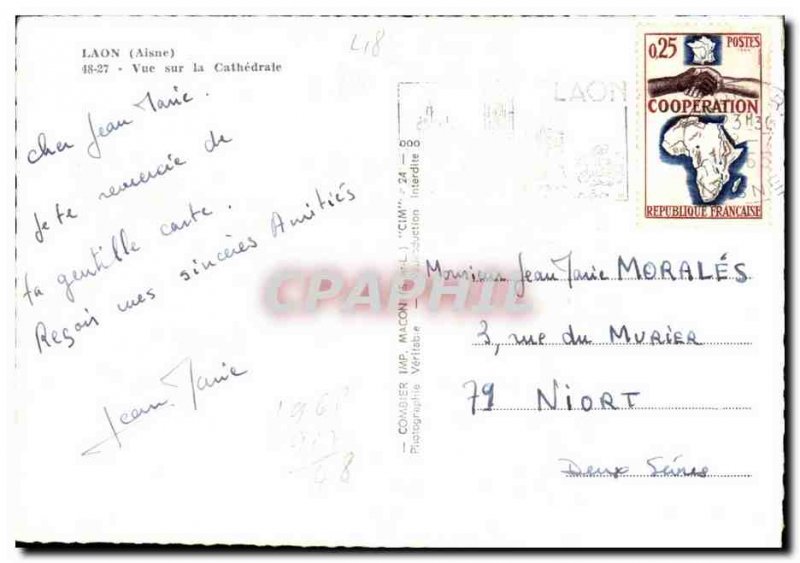 LAON (Aisne)
48-27 - Vue sur la Cathédrale
L18
cher Jean Marie.
je te remercie de
ta gentille carte.
Reçois mes sincères Amitiés
Jean Marie
— COMBIER IMP. MACON "CIM"
Photographie Véritable - Reproduction Interdite
LAON
0,25 POSTES
COOPERATION
REPUBLIQUE FRANÇAISE
Monsieur Jean Marie MORALÉS
3, rue du MURIER
79 NIORT
Deux Sèvres
CPAPHIL